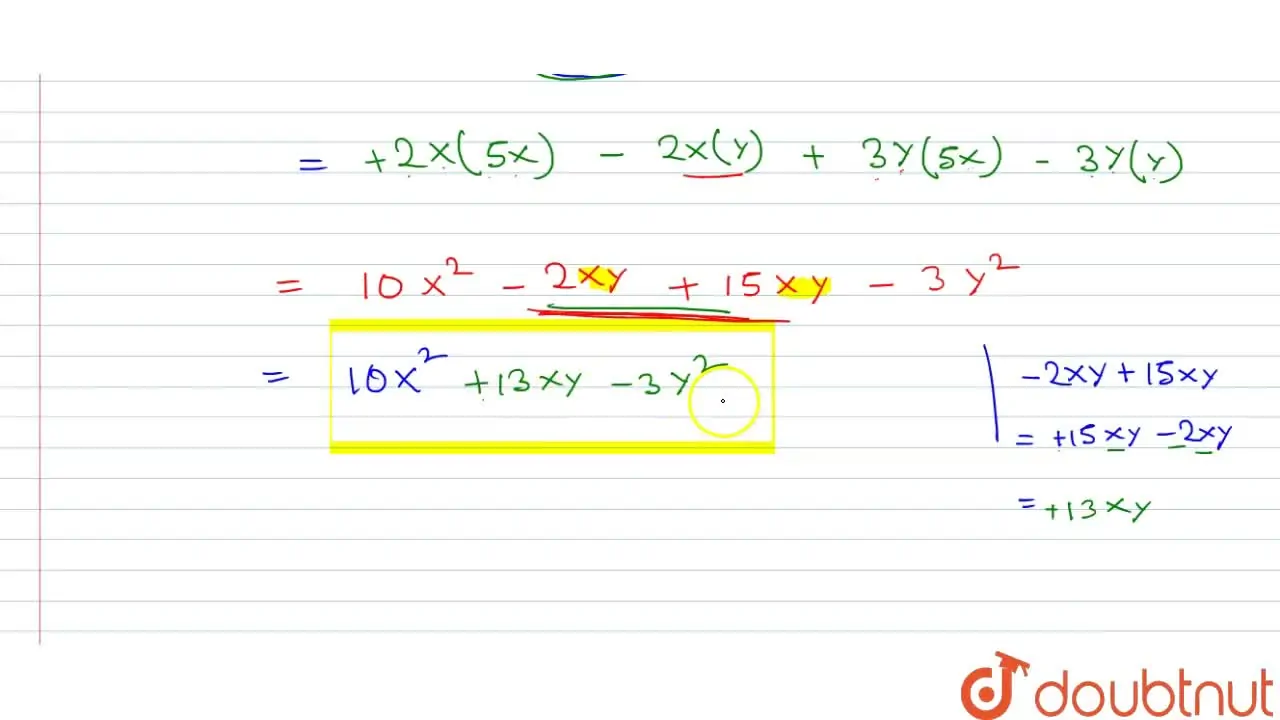 = +2x(5x) - 2x(y) + 3y(5x) - 3y(y)
= 10x² - 2xy + 15xy - 3y²
= 10x² +13xy -3y²
-2xy + 15xy
= +15xy -2xy
= +13xy
doubtnut